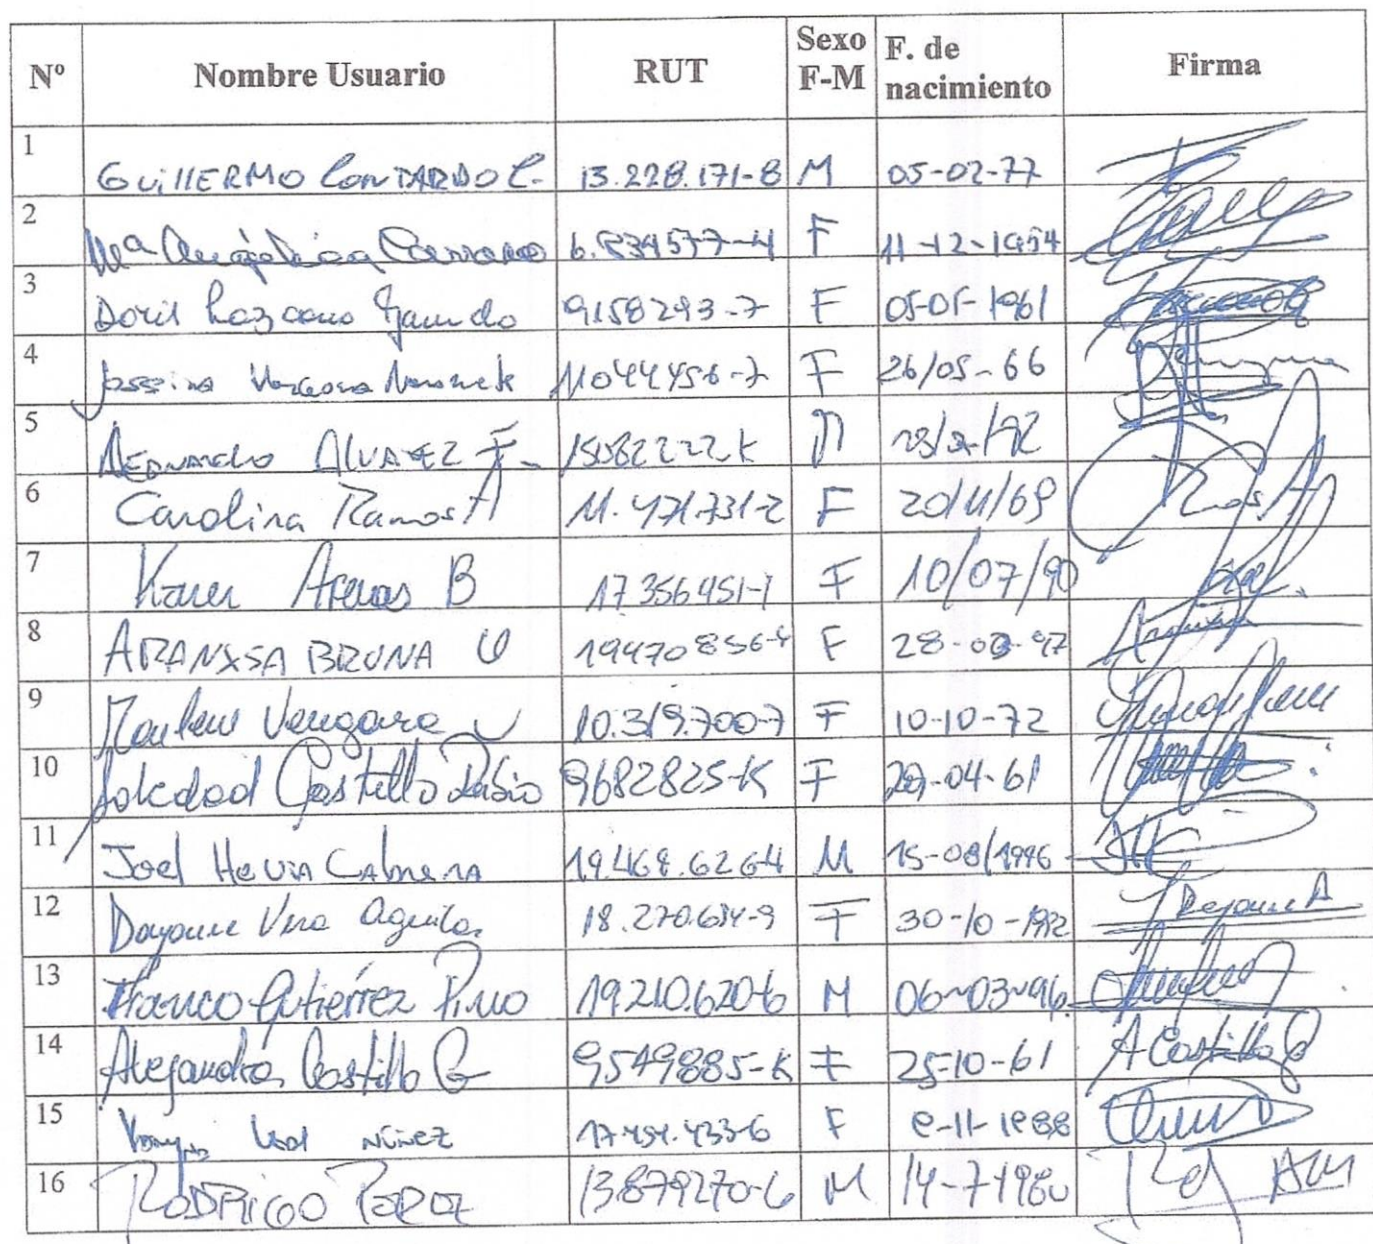 Nº Nombre Usuario RUT Sexo F-M F. de nacimiento Firma
1 GUIllERMO CONTARDO C. 13.228.171-8 M 05-02-77
2 Mª Angélica F 11-12-1954
3 Doris Lazcano 9158293-7 F 05-05-1961
4 11044456-7 F 26/05-66
5 ALVAREZ F. 15082222-K M
6 Carolina Ramos A 11.471.731-2 F 20/11/69 Ramos A
7 Karen Arenas B 17.356.451-1 F 10/07/90
8 ARANXSA BRUNA U 19470856-4 F 28- -97
9 Vergara V 10.319.700-7 F 10-10-72
10 Soledad Castillo Rubio 9682825-K F -04-61
11 Joel Hevia Cabrera 19.468.626-4 M 15-08/1996
12 Dayanne Vera Aguila 18.270.614-9 F 30-10-1992
13 Franco Gutiérrez Pino 19.210.620-6 M 06-03-96
14 Alejandra Castillo G 9549885-K F 25-10-61 A Castillo G
15 NÚÑEZ 17.454.433-6 F 8-11-1988
16 RODRIGO 13.879.270-6 M 14-7-1980